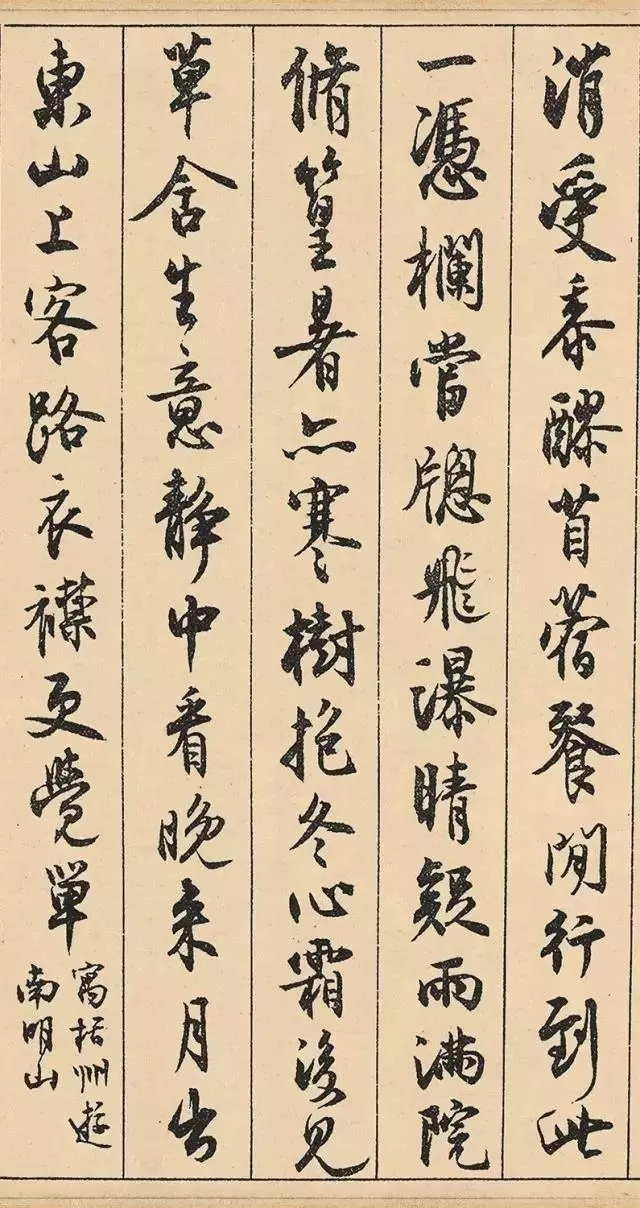 消受黍醪苜蓿餐閒行到此
一憑欄當牕飛瀑晴疑雨滿院
脩篁暑亦寒樹抱冬心霜後見
草含生意靜中看晚来月出
東山上客路衣襟更覺單
寓括州遊
南明山